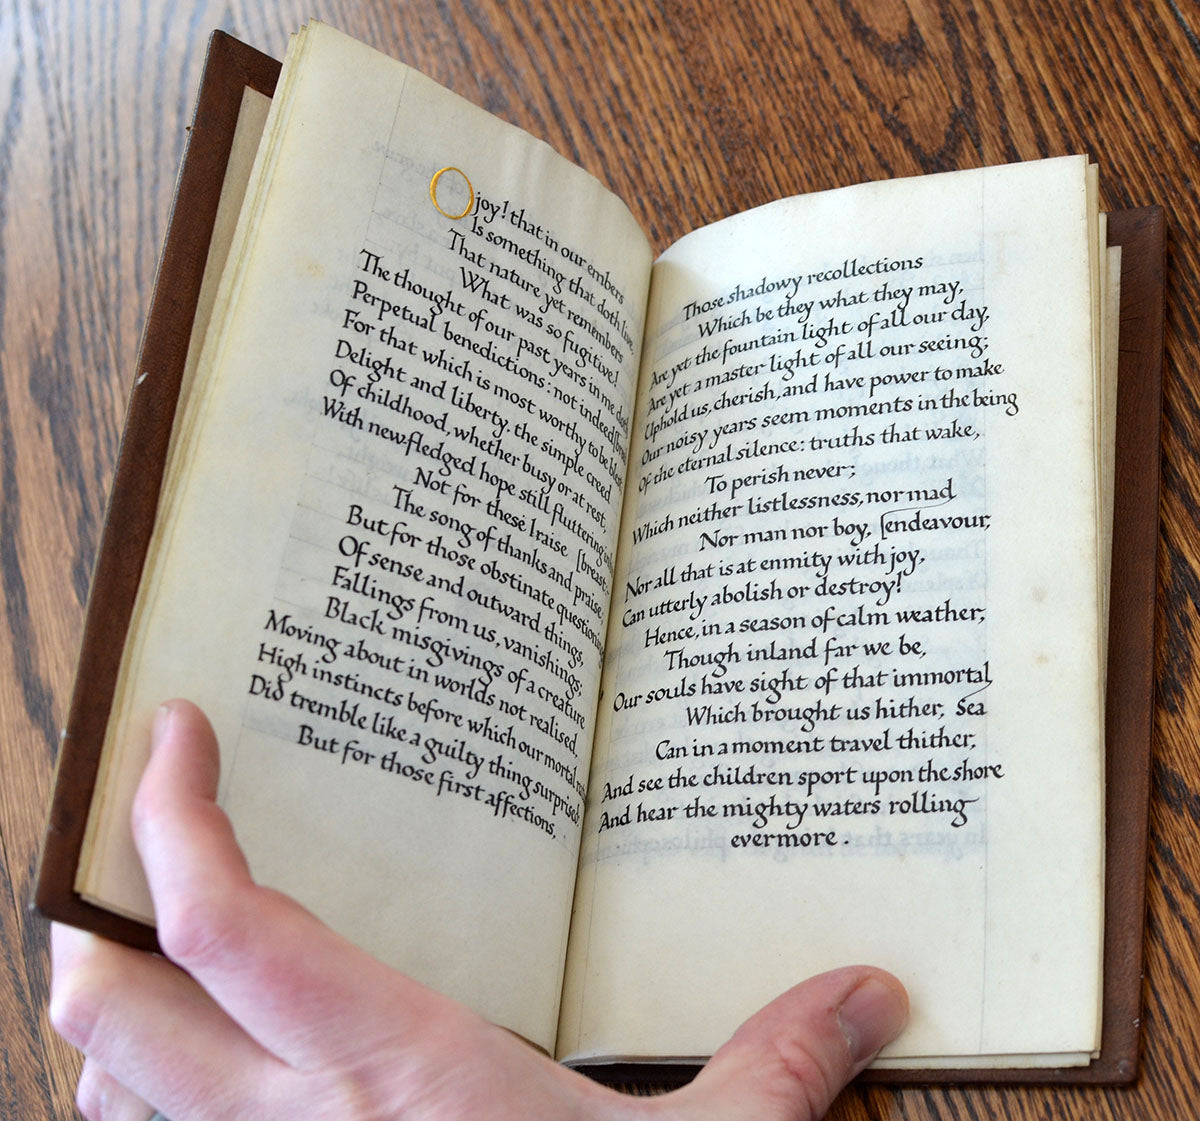 O joy! that in our embers
Is something that doth live,
That nature yet remembers
What was so fugitive!
The thought of our past years in me doth
Perpetual benedictions: not indeed [breed
For that which is most worthy to be blest,
Delight and liberty, the simple creed
Of childhood, whether busy or at rest,
With new-fledged hope still fluttering in his
Not for these I raise [breast;
The song of thanks and praise;
But for those obstinate questionings
Of sense and outward things,
Fallings from us, vanishings;
Black misgivings of a creature
Moving about in worlds not realised,
High instincts before which our mortal
Did tremble like a guilty thing surprised:
But for those first affections,
Those shadowy recollections
Which be they what they may,
Are yet the fountain light of all our day,
Are yet a master light of all our seeing;
Uphold us, cherish, and have power to make
Our noisy years seem moments in the being
Of the eternal silence: truths that wake,
To perish never;
Which neither listlessness, nor mad
Nor man nor boy, [endeavour,
Nor all that is at enmity with joy,
Can utterly abolish or destroy!
Hence, in a season of calm weather,
Though inland far we be,
Our souls have sight of that immortal
Which brought us hither, Sea
Can in a moment travel thither,
And see the children sport upon the shore
And hear the mighty waters rolling
evermore.